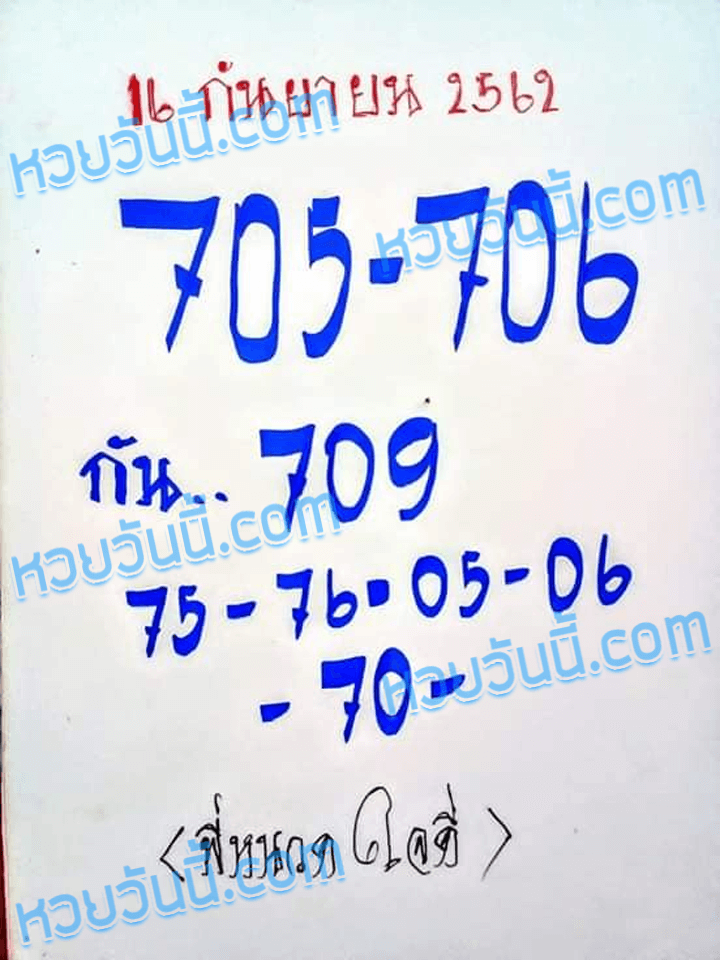 16 กันยายน 2562
หวยวันนี้.com
705-706
หวยวันนี้.com
กัน.. 709
หวยวันนี้.com
75-76-05-06
-70-
หวยวันนี้.com
<พี่หนวด ใจดี>
หวยวันนี้.com